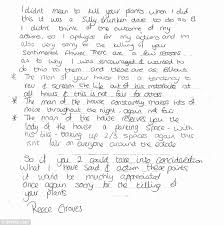 I didnt mean to kill your plants when I did
this it was a silly drunken dare to do as a
I didnt think of the outcome of my
actions, so I apologise for my actions and Im
also very sorry for the killing of your
Sentimental flower. There are a few reasons
as to why I was encouraged & wanted to
do this to them and these are as follows
* The man of your house has a tendency to
rev & scream the life out of his motorbike at
all hours & this is not fair for others
* The man of the house constantly makes lots of
noise throughout the night, again not fair
* The man of the house reserves you the
lady of the house a parking space - with
his , taking up 2/3 spaces again this
isnt fair on everyone around the
So if you 2 could take into consideration
what I have said & action these points
it would be much appreciated
once again sorry for the killing of
your plants
Reece Graves